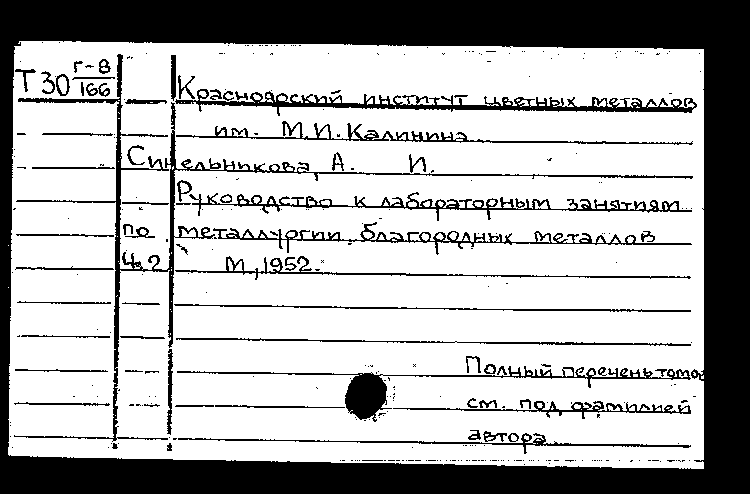 Т 30 Г-8/166
Красноярский институт цветных металлов
им. М.И. Калинина
Синельникова, А. И.
Руководство к лабораторным занятиям
по металлургии благородных металлов
Ч.2 М., 1952.
Полный перечень томов
см. под фамилией
автора